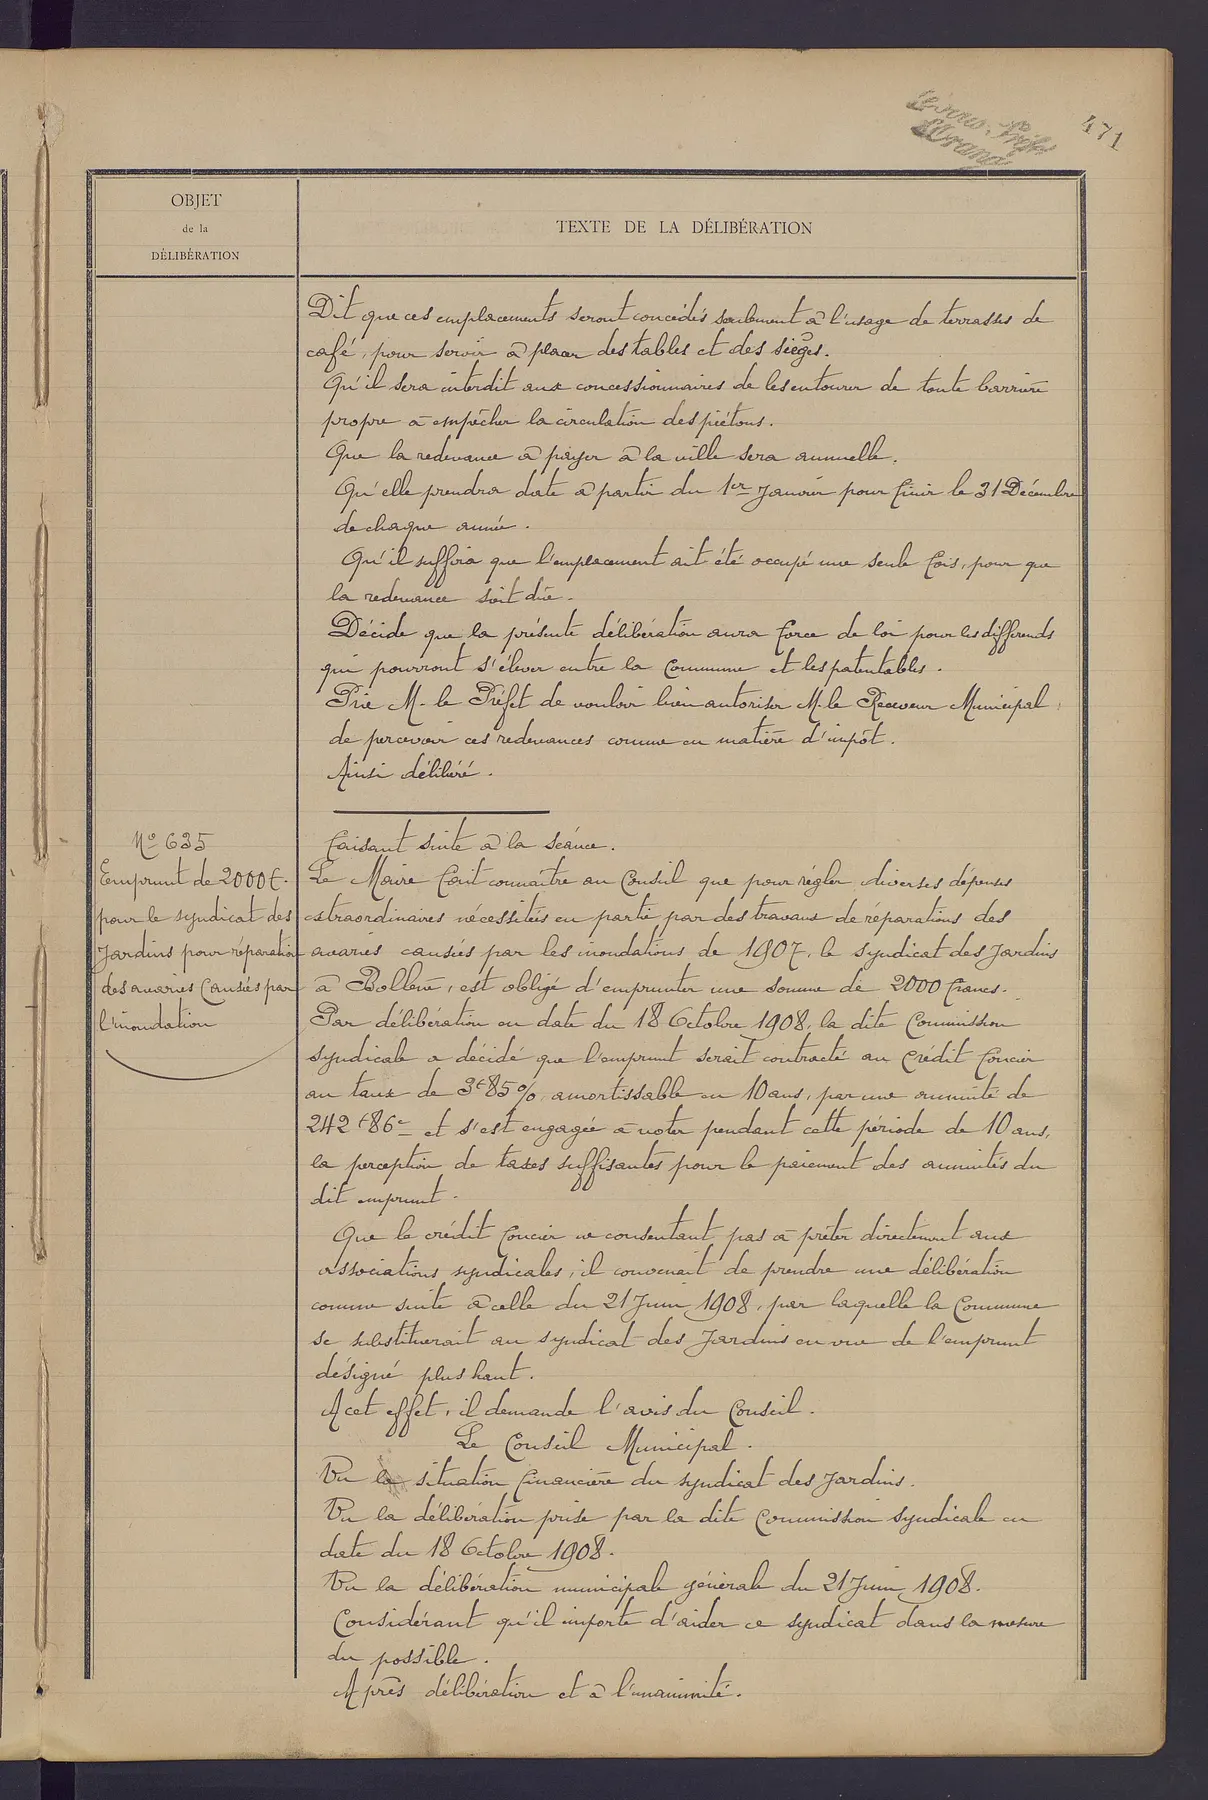 471
OBJET
de la
DÉLIBÉRATION
TEXTE DE LA DÉLIBÉRATION
Dit que ces emplacements seront concédés seulement à l'usage de terrasses de
café, pour servir à placer des tables et des sièges.
Qu'il sera interdit aux concessionnaires de les entourer de toute barrière
propre à empêcher la circulation des piétons.
Que la redevance à payer à la ville sera annuelle.
Qu'elle prendra date à partir du 1er Janvier pour finir le 31 Décembre
de chaque année.
Qu'il suffira que l'emplacement ait été occupé une seule fois, pour que
la redevance soit due.
Décide que la présente délibération aura force de loi pour les différends
qui pourront s'élever entre la Commune et les patentables.
Prie M. le Préfet de vouloir bien autoriser M. le Receveur Municipal,
de percevoir ces redevances comme en matière d'impôt.
Ainsi délibéré.
No 635
Emprunt de 2000 f.
pour le syndicat des
Jardins pour réparation
des avaries causées par
l'inondation
Faisant suite à la séance.
Le Maire fait connaître au Conseil que pour régler diverses dépenses
extraordinaires nécessitées en partie par des travaux de réparations des
avaries causées par les inondations de 1907, le syndicat des Jardins
à Bollène, est obligé d'emprunter une somme de 2000 francs.
Par délibération en date du 18 Octobre 1908, la dite Commission
syndicale a décidé que l'emprunt serait contracté au Crédit foncier
au taux de 3f85%, amortissable en 10 ans, par une annuité de
242f86c et s'est engagée à voter pendant cette période de 10 ans,
la perception de taxes suffisantes pour le paiement des annuités du
dit emprunt.
Que le crédit foncier ne consentant pas à prêter directement aux
associations syndicales, il convenait de prendre une délibération
comme suite à celle du 21 Juin 1908, par laquelle la Commune
se substituerait au syndicat des Jardins en vue de l'emprunt
désigné plus haut.
A cet effet, il demande l'avis du Conseil.
Le Conseil Municipal.
Vu la situation financière du syndicat des Jardins.
Vu la délibération prise par la dite Commission syndicale en
date du 18 Octobre 1908.
Vu la délibération municipale générale du 21 Juin 1908.
Considérant qu'il importe d'aider ce syndicat dans la mesure
du possible.
Après délibération et à l'unanimité.